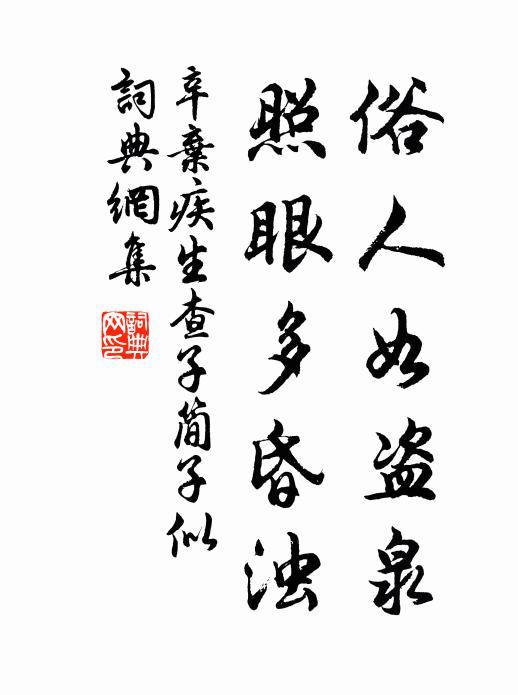 俗人如盗泉
照眼多昏浊
辛棄疾生查子简子似
詞典網集
詞典網印